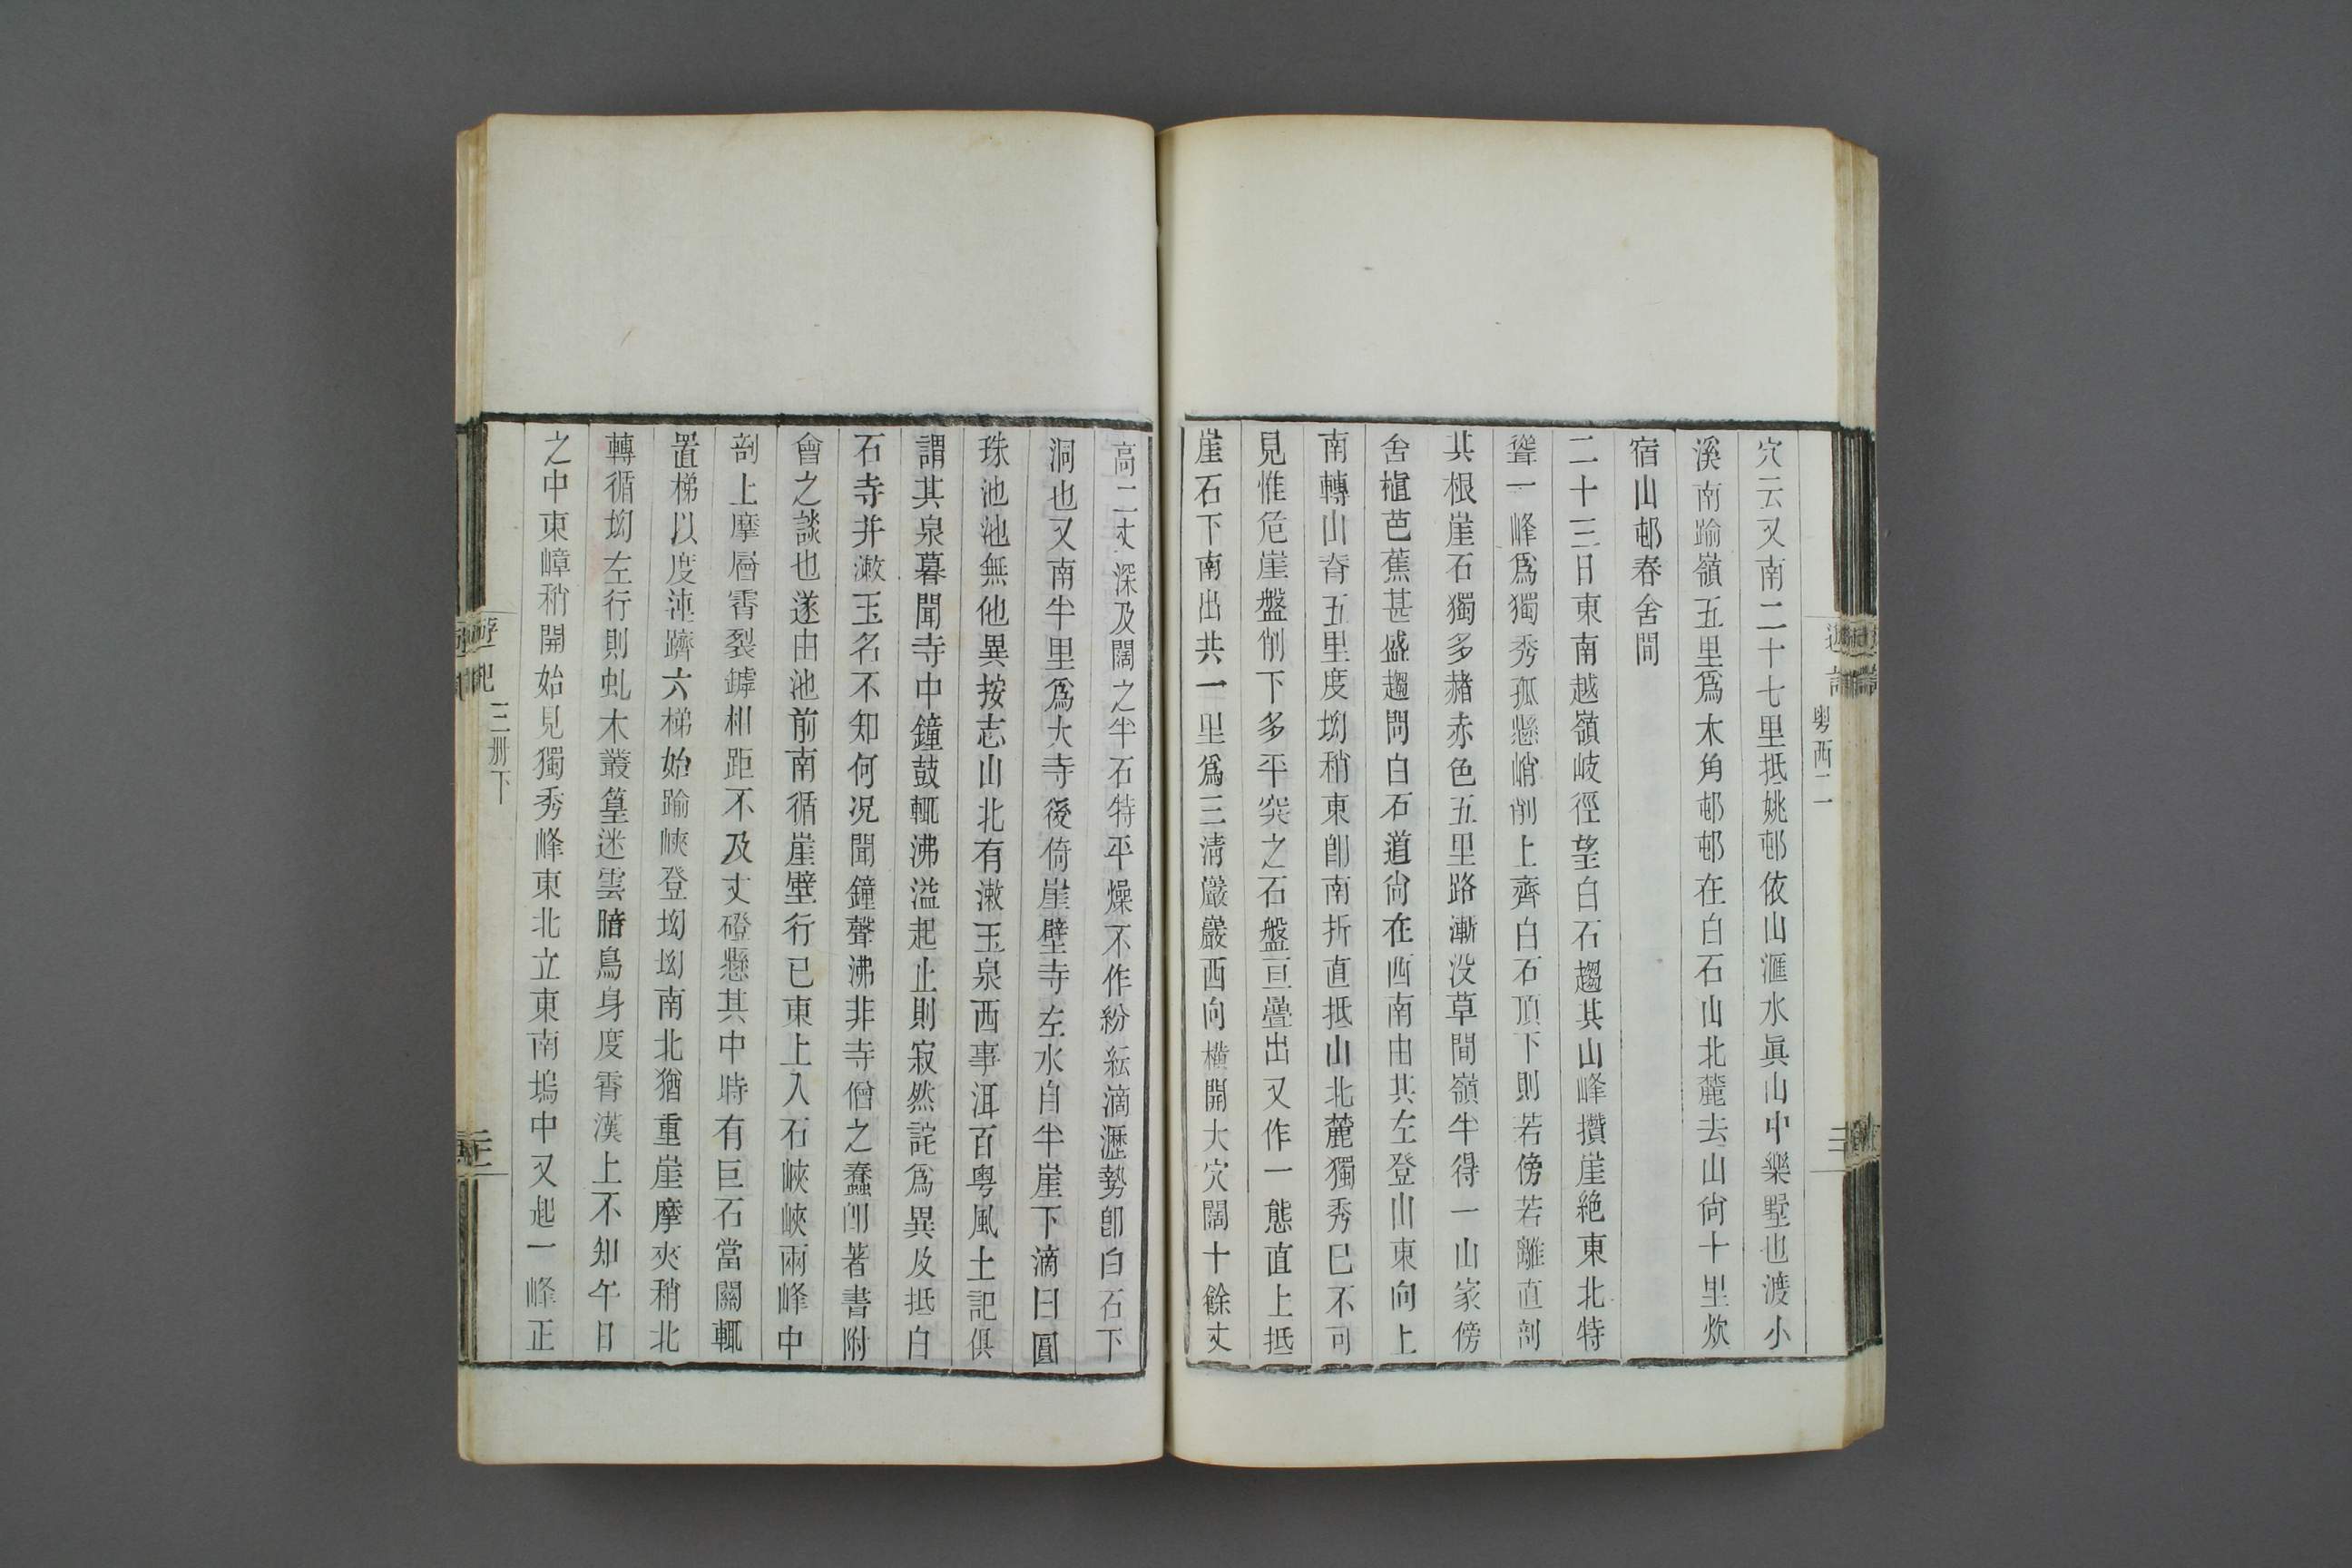 粵西二
穴云又南二十七里抵姚邨依山滙水眞山中樂墅也渡小
溪南踰嶺五里爲木角邨邨在白石山北麓去山尙十里炊
宿山邨舂舍間
二十三日東南越嶺岐徑望白石趨其山峰攢崖絶東北特
聳一峰爲獨秀孤懸峭削上齊白石頂下則若傍若離直剖
其根崖石獨多赭赤色五里路漸没草間嶺半得一山家傍
舍植芭蕉甚盛趨問白石道尙在西南由其左登山東向上
南轉山脊五里度坳稍東卽南折直抵山北麓獨秀已不可
見惟危崖盤削下多平突之石盤亘疊出又作一態直上抵
崖石下南出共一里爲三淸巖巖西向橫開大穴闊十餘丈
高二丈深及闊之半石特平燥不作紛紜滴瀝勢卽白石下
洞也又南半里爲大寺後倚崖壁寺左水自半崖下滴曰圓
珠池池無他異按志山北有漱玉泉西事洱百粵風土記俱
謂其泉暮聞寺中鐘鼓輒沸溢起止則寂然詫爲異及抵白
石寺并漱玉名不知何况聞鐘聲沸非寺僧之蠢卽著書附
會之談也遂由池前南循崖壁行已東上入石峽峽兩峰中
剖上摩層霄裂罅相距不及丈磴懸其中時有巨石當關輒
置梯以度連躋六梯始踰峽登坳坳南北猶重崖摩夾稍北
轉循坳左行則虬木叢篁迷雲暗鳥身度霄漢上不知午日
之中東嶂稍開始見獨秀峰東北立東南塢中又起一峰正
遊記
三册下